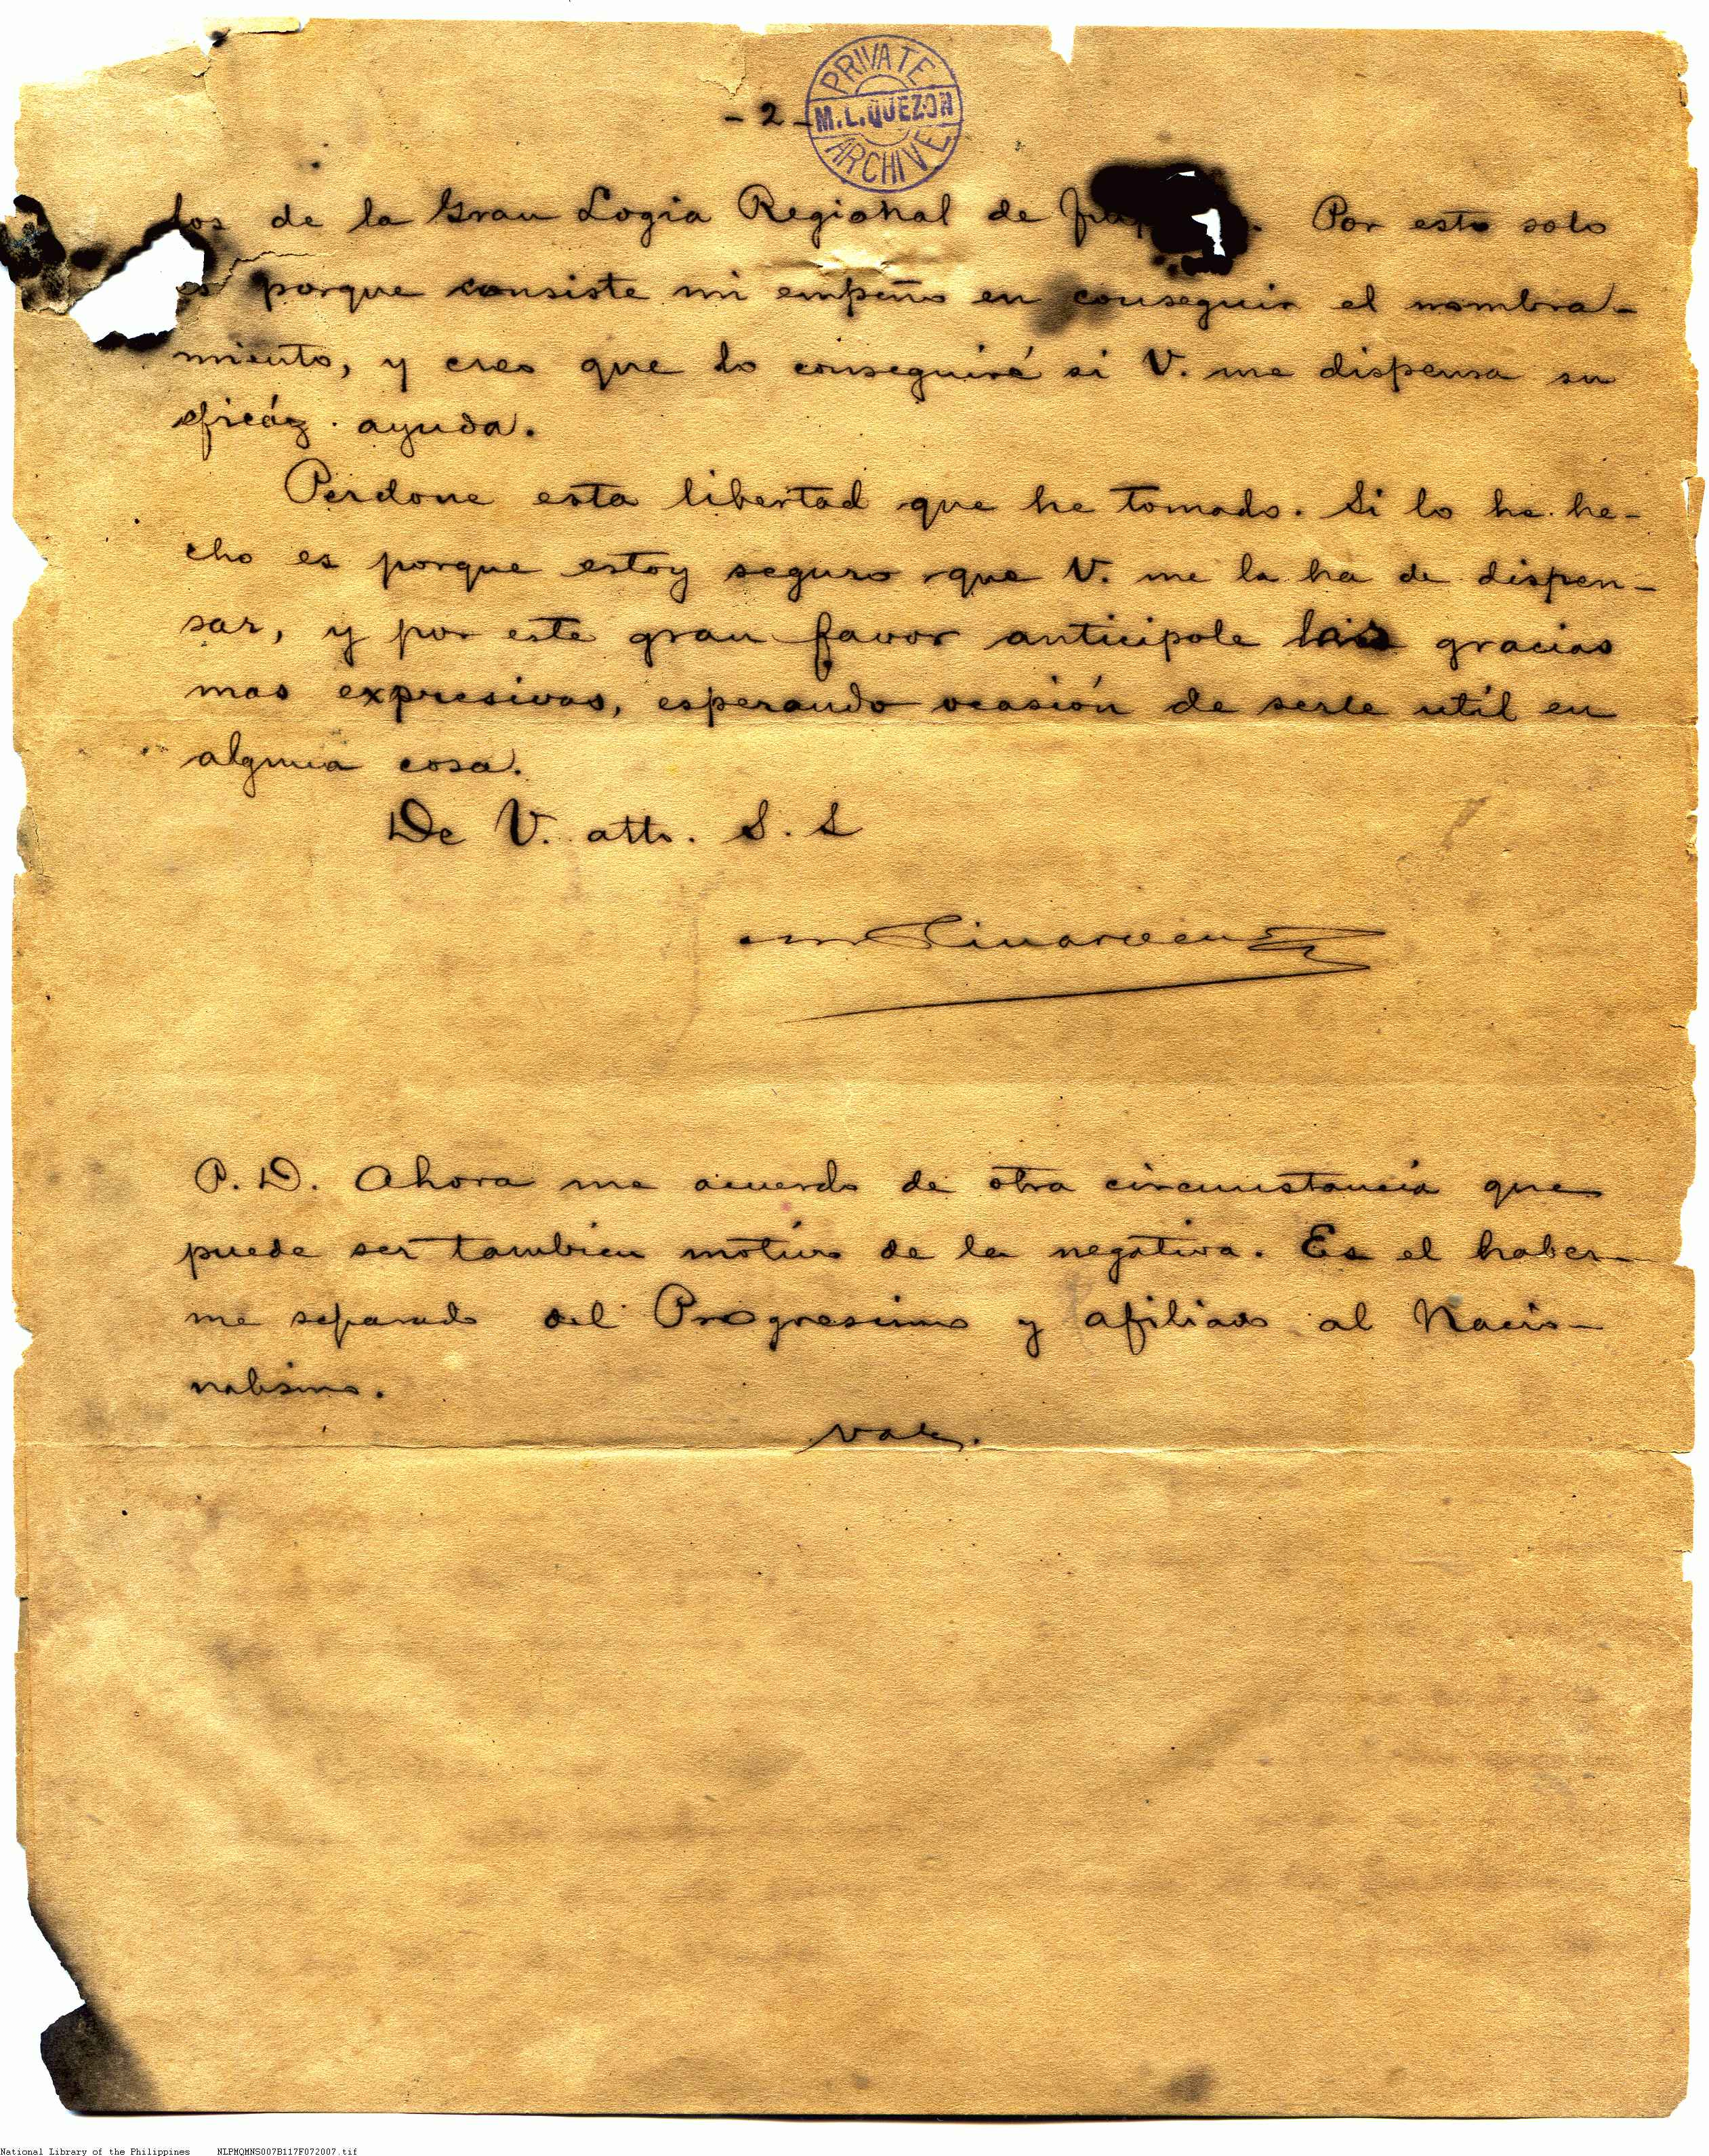 - 2 -
PRIVATE
M. L. QUEZON
ARCHIVE
los de la Gran Logia Regional de . Por esto solo
es porque consiste mi empeño en conseguir el nombra-
miento, y creo que lo conseguiré si V. me dispensa su
eficáz ayuda.
Perdone esta libertad que he tomado. Si lo he he-
cho es porque estoy seguro que V. me la ha de dispen-
sar, y por este gran favor anticipole las gracias
mas expresivas, esperando ocasión de serle util en
alguna cosa.
De V. atto. S. S
P. D. Ahora me acuerdo de otra circunstancia que
puede ser tambien motivo de la negativa. Es el haber-
me separado del Progresismo y afiliado al Nacio-
nalismo.
Vale.
National Library of the Philippines NLPMQMNS007B117F072007.tif